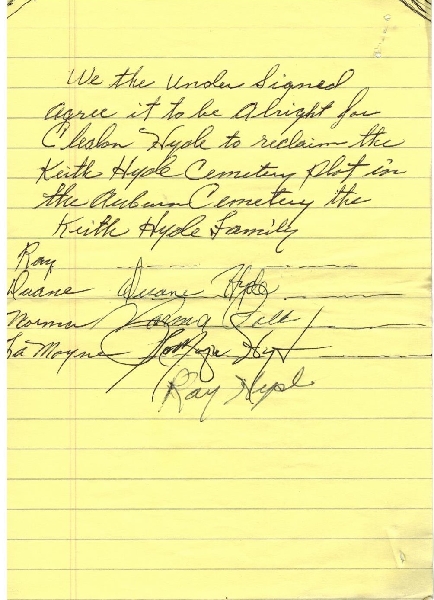 We the under Signed
agree it to be alright for
Cleslon Hyde to reclaim the
Keith Hyde Cemetery plot in
the Auburn Cemetery the
Keith Hyde Family
Ray
Duane Duane Hyde
Norma Norma
La Moyne
Ray Hyde